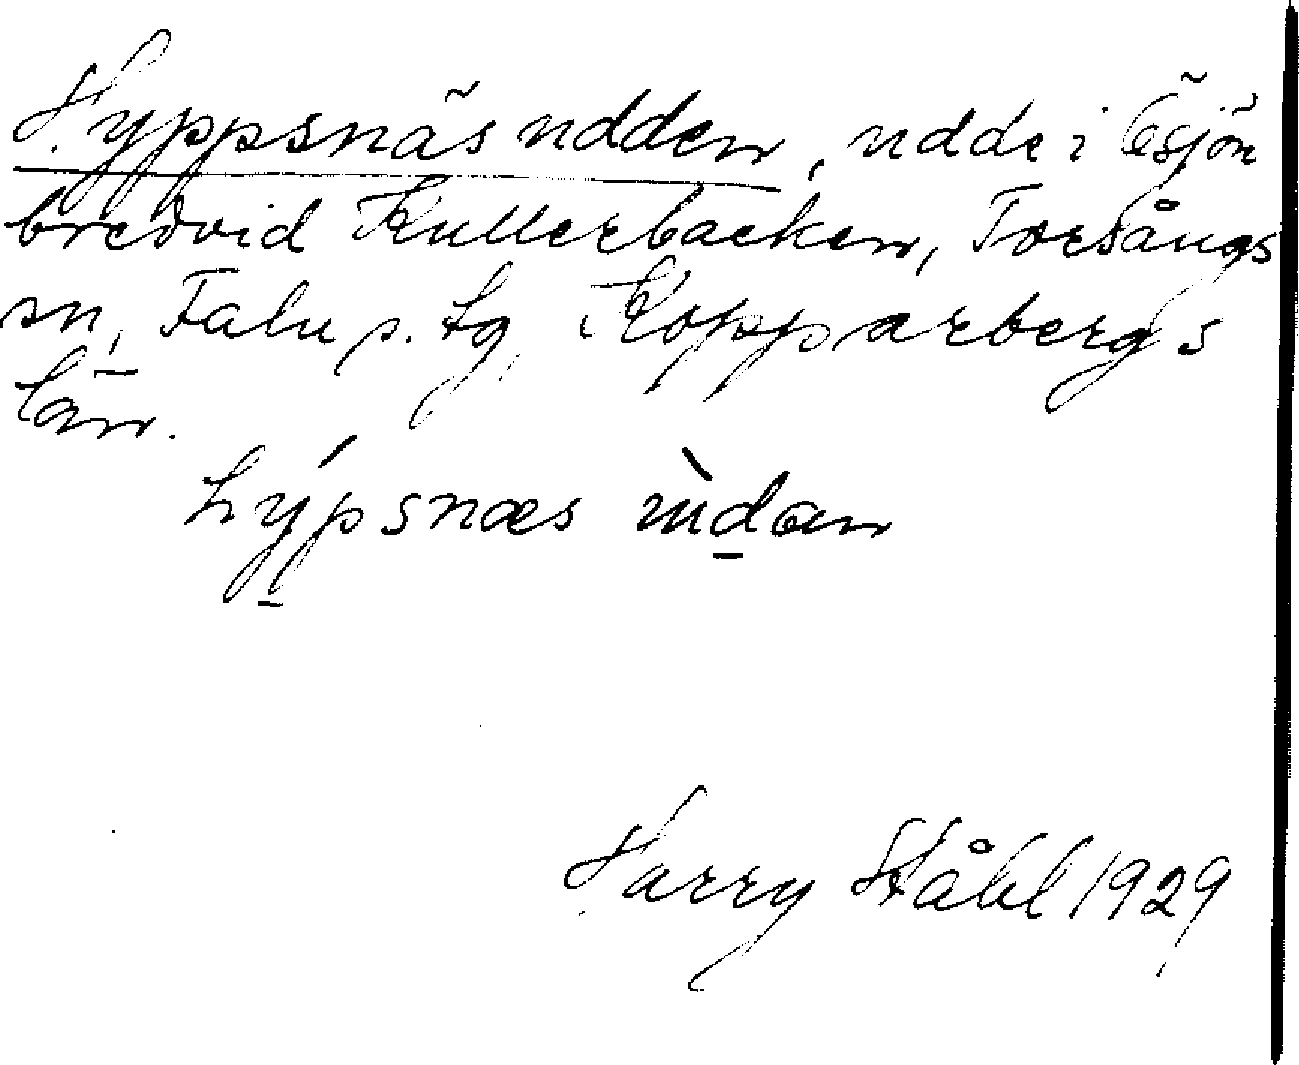 Hyppsnäsudden, udde i Ösjön
bredvid Kullerbacken, Torsångs
sn, Falu s. tg, Kopparbergs
län.
hýpsnæs ùdan
Harry Ståhl 1929